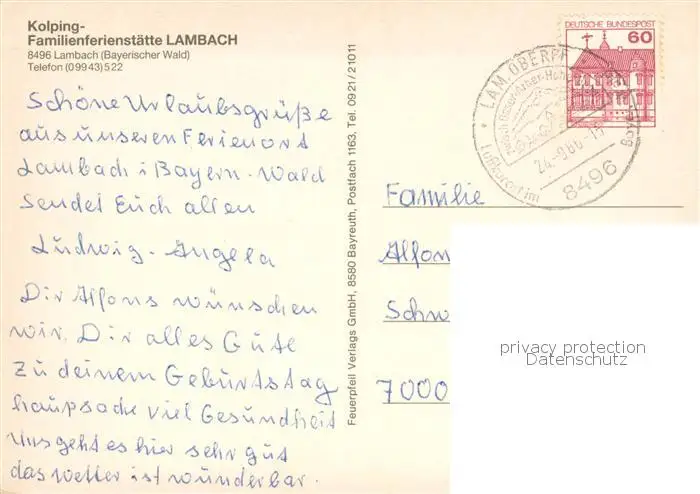 Kolping-
Familienferienstätte LAMBACH
8496 Lambach (Bayerischer Wald)
Telefon (09943) 522
Schöne Urlaubsgrüße
aus unseren Ferienort
Lambach i Bayern. Wald
sendet Euch allen
Ludwig - Angela
Dir Alfons wünschen
wir. Dir alles Gute
zu deinem Geburtstag
haupsache viel Gesundheit
uns geht es hier sehr gut
das Wetter ist wunderbar.
Feuerpfeil Verlags GmbH, 8580 Bayreuth, Postfach 1163, Tel. 0921/21011
DEUTSCHE BUNDESPOST
60
LAM, OBERPF
Luftkurort im Bayer
24.-9.80.-1
8496
Familie
Alfon
Schw
7000
privacy protection
Datenschutz